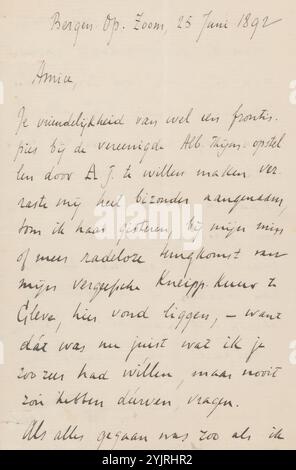 Bergen Op. Zoom, 25 Juni 1892
Amice,
Je vriendelijkheid van wel een frontis-
pies bij de vereenigde Alb. Thijm-opstel
len door A. J. te willen maken, ver-
raste mij heel bizonder aangenaam,
toen ik haar gisteren, bij mijn min
of meer radeloze terugkomst van
mijn vergeefsche Kneipp-Kuur te
Cleve, hier vond liggen, – want
dát was nu juist wat ik je
zoo zeer had willen, maar nooit
zou hebben durven, vragen.
Als alles gegaan was zoo als ik
alamy
Image ID: 2YJRHR2
www.alamy.com